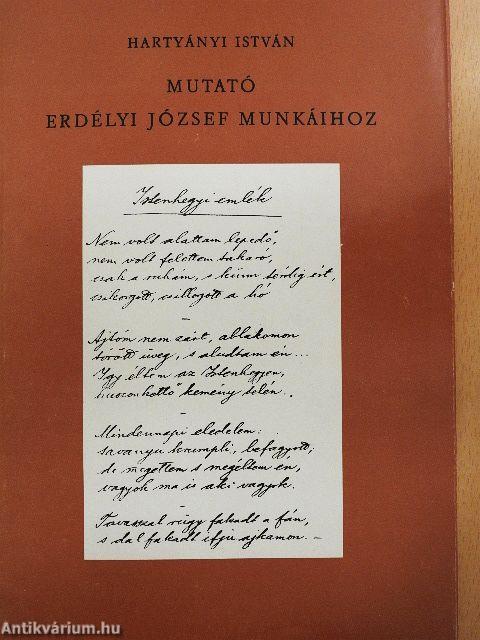 HARTYÁNYI ISTVÁN
MUTATÓ
ERDÉLYI JÓZSEF MUNKÁIHOZ
Istenhegyi emlék
Nem volt alattam lepedő,
nem volt felettem takaró,
csak a ruhám, s künn térdig ért,
csikorgott, csillogott a hó
–
Ajtóm nem zárt, ablakomon
törött üveg, s aludtam én...
Igy éltem az Istenhegyen,
huszonkettő kemény telén..
–
Mindennapi eledelem:
savanyu krumpli, befagyott;
de megettem s megéltem én,
vagyok ma is aki vagyok.
–
Tavasszal rügy fakadt a fán,
s dal fakadt ifju ajkamon. –
Antikvárium.hu